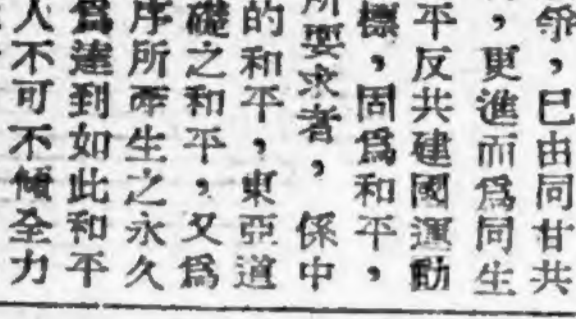 命，已由同甘共
，更進而爲同生
平反共建國運動
標，固爲和平，
所要求者，係中
的和平，東亞道
礎之和平，又爲
序所產生之永久
爲達到如此和平
人不可不傾全力